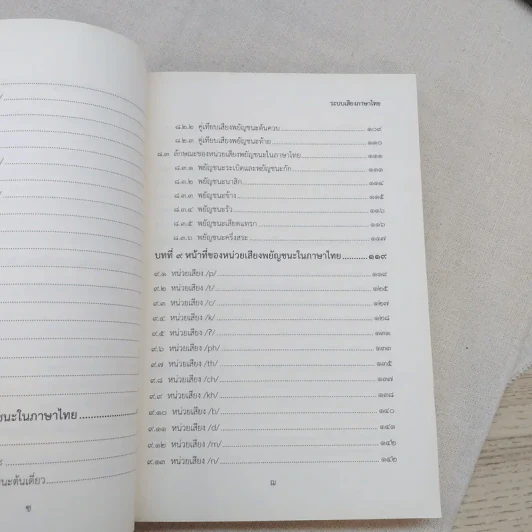 นะในภาษาไทย
นะต้นเดี่ยว
ช
ระบบเสียงภาษาไทย
๘.๒.๒ คู่เทียบเสียงพยัญชนะต้นควบ ๑๐๙
๘.๒.๓ คู่เทียบเสียงพยัญชนะท้าย ๑๑๐
๘.๓ ลักษณะของหน่วยเสียงพยัญชนะในภาษาไทย ๑๑๑
๘.๓.๑ พยัญชนะระเบิดและพยัญชนะกัก ๑๑๑
๘.๓.๒ พยัญชนะนาสิก ๑๑๔
๘.๓.๓ พยัญชนะข้าง ๑๑๕
๘.๓.๔ พยัญชนะรัว ๑๑๖
๘.๓.๕ พยัญชนะเสียดแทรก ๑๑๖
๘.๓.๖ พยัญชนะครึ่งสระ ๑๑๗
บทที่ ๙ หน้าที่ของหน่วยเสียงพยัญชนะในภาษาไทย ๑๑๙
๙.๑ หน่วยเสียง /p/ ๑๑๙
๙.๒ หน่วยเสียง /t/ ๑๒๕
๙.๓ หน่วยเสียง /c/ ๑๒๗
๙.๔ หน่วยเสียง /k/ ๑๒๘
๙.๕ หน่วยเสียง /ʔ/ ๑๓๑
๙.๖ หน่วยเสียง /ph/ ๑๓๓
๙.๗ หน่วยเสียง /th/ ๑๓๕
๙.๘ หน่วยเสียง /ch/ ๑๓๗
๙.๙ หน่วยเสียง /kh/ ๑๓๘
๙.๑๐ หน่วยเสียง /b/ ๑๔๐
๙.๑๑ หน่วยเสียง /d/ ๑๔๑
๙.๑๒ หน่วยเสียง /m/ ๑๔๒
๙.๑๓ หน่วยเสียง /n/ ๑๔๒
ฌ